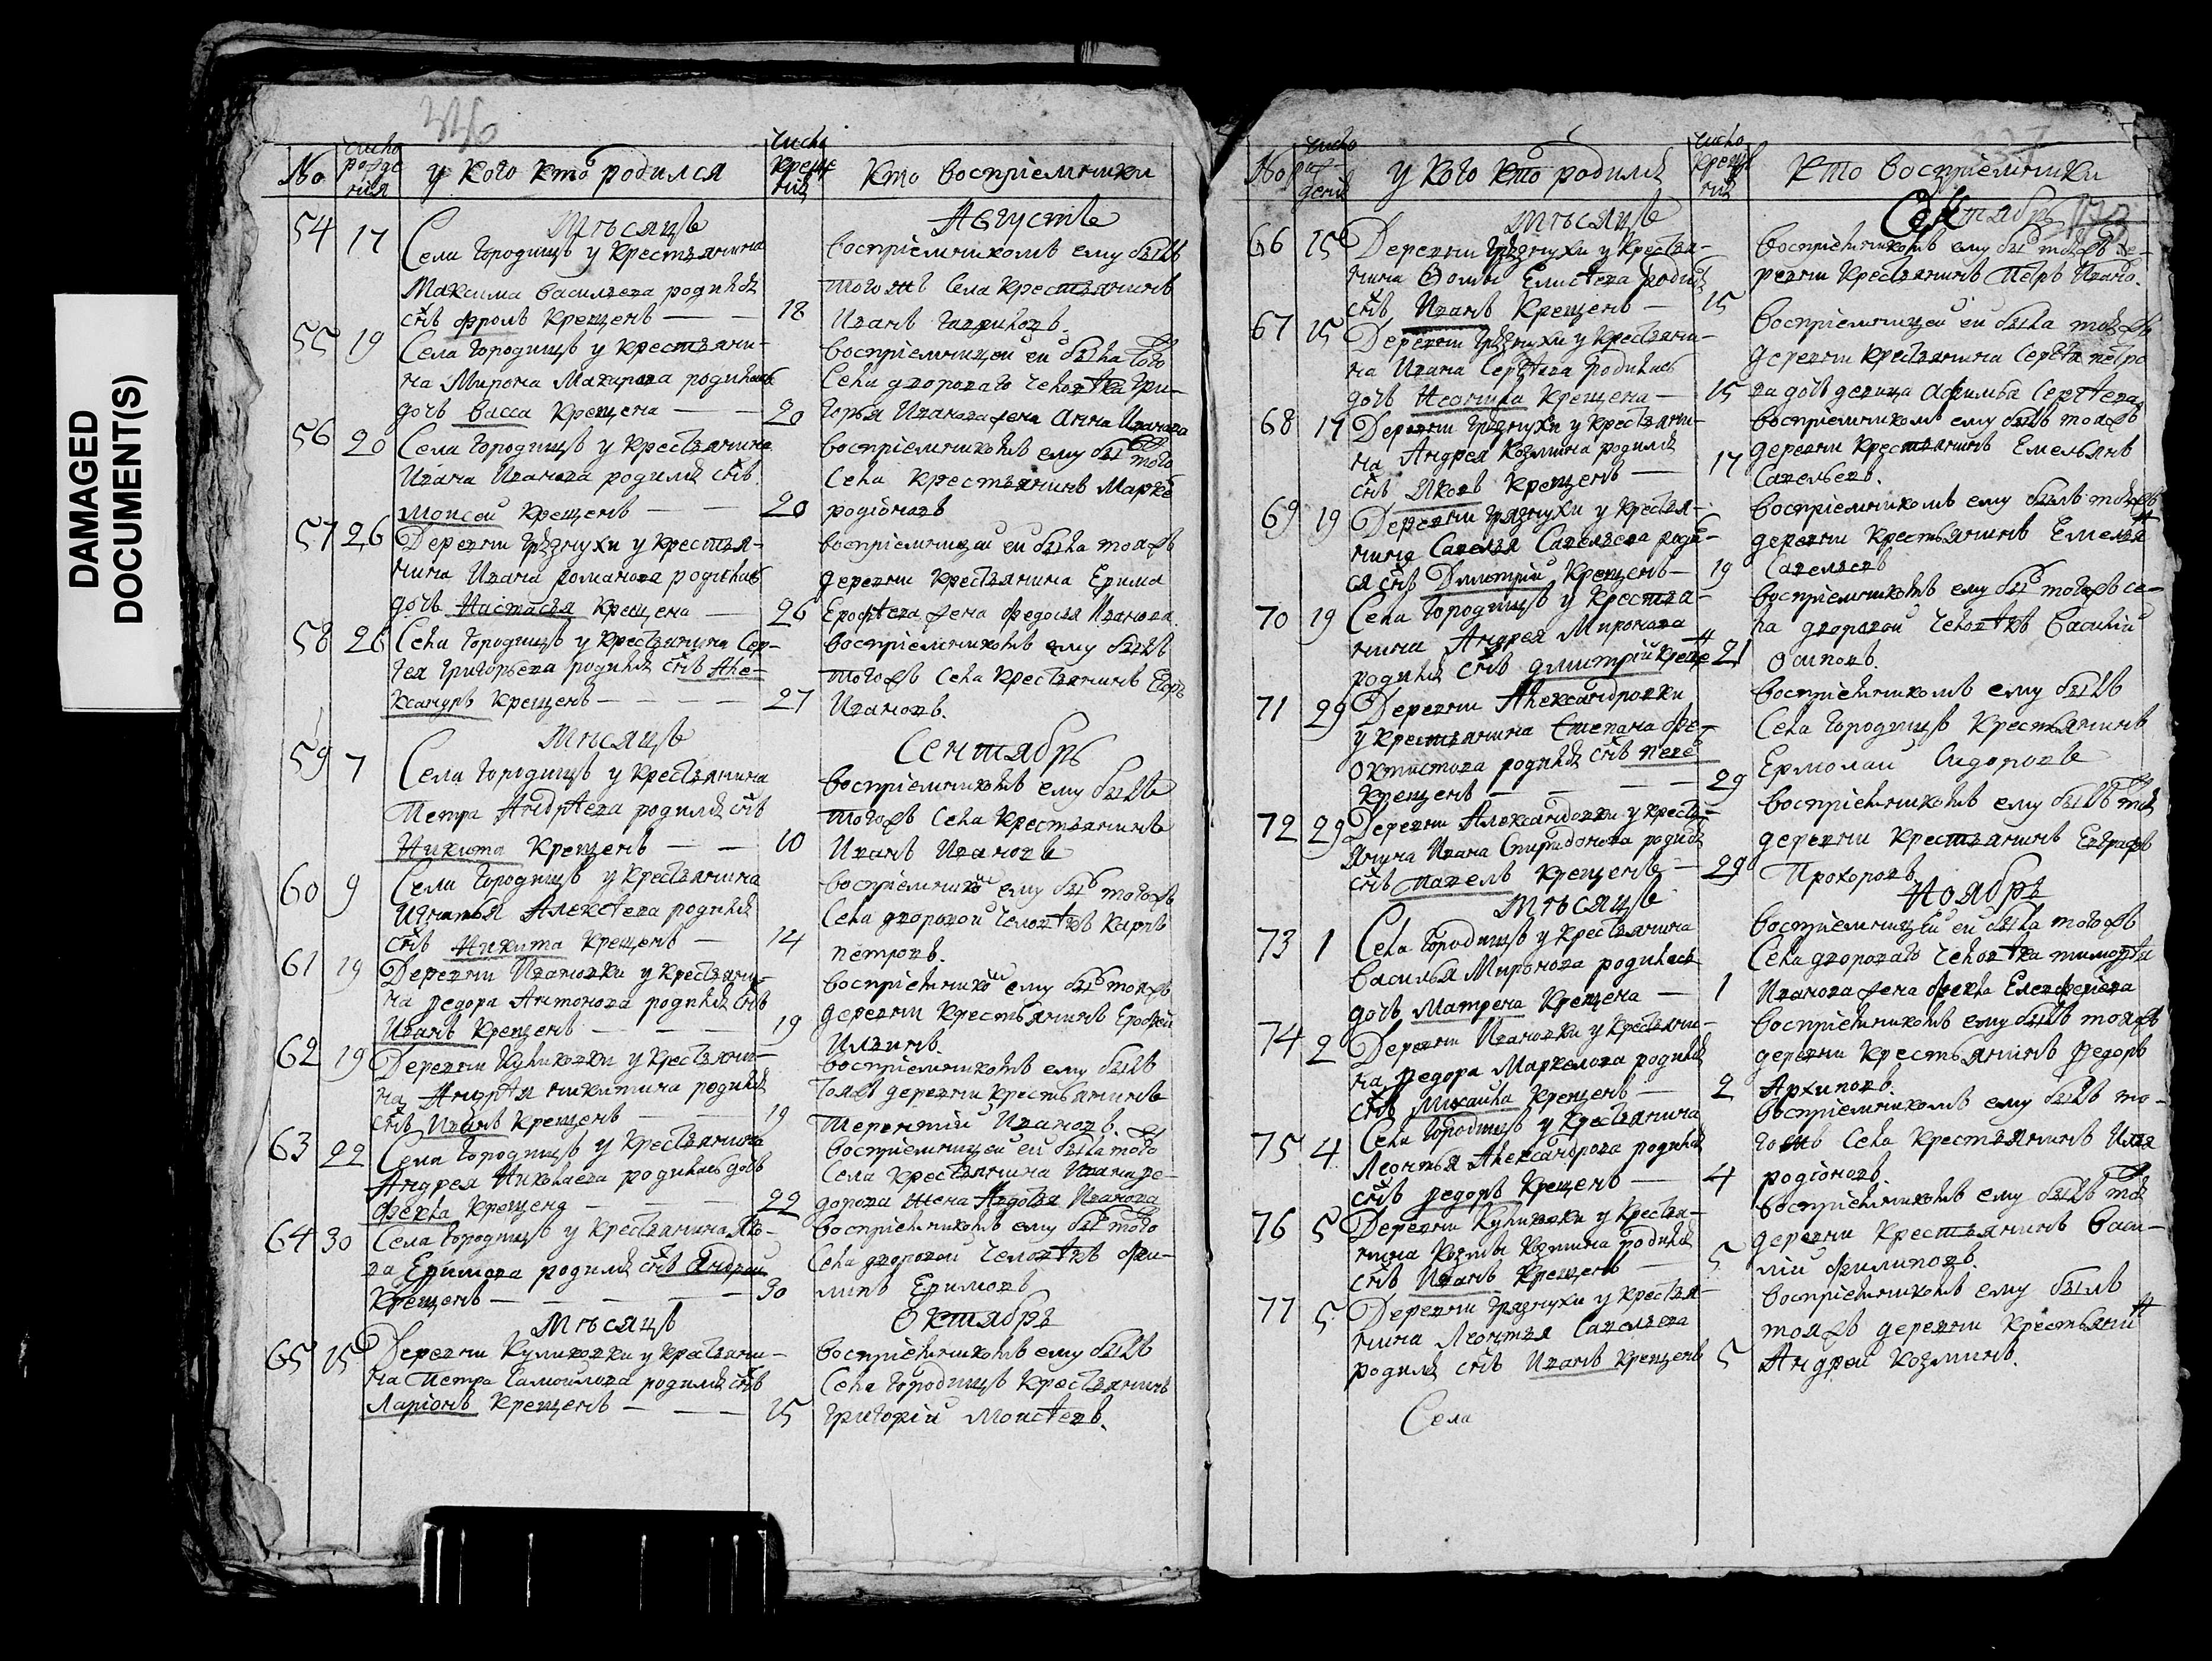 DAMAGED
DOCUMENT(S)
No
число рожде нія
у кого кто родился
число креще нія
кто воспріемники
Мѣсяцъ Августъ
54 17 Села Городищъ у крестьянина
Максима Васильева родился
снъ Фролъ крещенъ — — 18
воспріемникомъ ему былъ
тогожъ села крестьянинъ
Иванъ Гавриловъ.
55 19 Села Городищъ у крестьяни-
на Мирона Макарова родилась
дочь Васса крещена — — 20
воспріемницей ей была того
села двороваго человѣка Гри-
горья Иванова жена Анна Иванова
56 20 Села Городищъ у крестьянина
Ивана Иванова родился снъ
Моисей крещенъ — — 20
воспріемникомъ ему былъ того
села крестьянинъ Марке
родіоновъ
57 26 Деревни Грязнухи у крестья-
нина Ивана Романова родилась
дочь Настасья крещена — 26
воспріемницей ей была тояжъ
деревни крестьянина Ефима
Ерофѣева жена Федосья Иванова.
58 26 Села Городищъ у крестьянина Сер-
гея Григорьева родился снъ Але-
ксандръ крещенъ — — — — 27
воспріемникомъ ему былъ
тогожъ села крестьянинъ Егоръ
Ивановъ.
Мѣсяцъ Сентябрь
59 7 Села Городищъ у крестьянина
Петра Андрѣева родился снъ
Никита крещенъ — — 10
воспріемникомъ ему былъ
тогожъ села крестьянинъ
Иванъ Ивановъ
60 9 Села Городищъ у крестьянина
Игнатья Алексѣева родился
снъ Никита крещенъ — 14
воспріемникомъ ему былъ тогожъ
села дворовой человѣкъ Карпъ
петровъ.
61 19 Деревни Ивановки у крестьяни-
на Федора Антонова родился снъ
Иванъ крещенъ — — — 19
воспріемникомъ ему былъ тояжъ
деревни крестьянинъ Ерофей
Ильинъ.
62 19 Деревни Куликовки у крестьяни-
на Андрѣя никитина родился
снъ Иванъ крещенъ — 19
воспріемникомъ ему былъ
тояжъ деревни крестьянинъ
Терентій Ивановъ.
63 22 Села Городищъ у крестьянина
Андрея Николаева родилась дочь
Фекла крещена — — — 22
воспріемницей ей была того
села крестьянина Ивана Фе-
дорова жена Авдотья Иванова
64 30 Села Городищъ у крестьянина Яко-
ва Ефимова родился снъ Андрей
крещенъ — — — — — 30
воспріемникомъ ему былъ того
села дворовой человѣкъ Фи-
липъ Ефимовъ
Мѣсяцъ Октябрь
65 15 Деревни Куликовки у крестьяни-
на Петра Самойлова родился снъ
Ларіонъ крещенъ — — 15
воспріемникомъ ему былъ
села Городищъ крестьянинъ
Григорій Моисѣевъ.
No
число ро- денія
у кого кто родился
число креще нія
кто воспріемники
Мѣсяцъ
66 15 Деревни Грязнухи у крестья-
нина Фомы Елисѣева родился
снъ Иванъ крещенъ — 15
воспріемникомъ ему былъ тояжъ де-
ревни крестьянинъ Петръ Ивано.
67 15 Деревни Грязнухи у крестьяни-
на Ивана Сергѣева родилась
дочь Неонила крещена — 15
воспріемницей ей была тояжъ
деревни крестьянина Сергѣя петро
ва дочь девица Афимья Сергѣева
68 17 Деревни Грязнухи у крестьяни-
на Андрея Козмина родился
снъ Яковъ крещенъ — 17
воспріемникомъ ему былъ тояжъ
деревни крестьянинъ Емельянъ
Савельевъ.
69 19 Деревни Грязнухи у крестья-
нина Савелья Савельева роди-
ся снъ Дмитрій крещенъ — 19
воспріемникомъ ему былъ тояжъ
деревни крестьянинъ Емелья
Савельевъ
70 19 Села Городищъ у крестья-
нина Андрея Миронова
родился снъ Дмитрій креще 21
воспріемникомъ ему былъ тогожъ се-
ла дворовой человѣкъ Василій
Осиповъ.
71 29 Деревни Александровки
у крестьянина Степана Фе-
октистова родился снъ
крещенъ — — — — 29
воспріемникомъ ему былъ
села Городищъ крестьянинъ
Ермолай Сидоровъ
72 29 Деревни Александровки у кресть-
янина Ивана Спиридонова родился
снъ Павелъ крещенъ — 29
воспріемникомъ ему былъ той
деревни крестьянинъ Евграфъ
Прохоровъ
Мѣсяцъ Ноябрь
73 1 Села Городищъ у крестьянина
Василья Миронова родилась
дочь Матрена крещена — 1
воспріемницей ей была тогожъ
села двороваго человѣка тимофѣя
Иванова жена Фекла Елеоферьева
74 2 Деревни Ивановки у крестьяни-
на Федора Маркелова родился
снъ Михаила крещенъ — 2
воспріемникомъ ему былъ тояжъ
деревни крестьянинъ Федоръ
Архиповъ.
75 4 Села Городищъ у крестьянина
Леонтья Александрова родился
снъ Федоръ крещенъ — 4
воспріемникомъ ему былъ то-
гожъ села крестьянинъ Илья
родіоновъ.
76 5 Деревни Куликовки у крестья-
нина Козмы Козмина родился
снъ Иванъ крещенъ — 5
воспріемникомъ ему былъ той
деревни крестьянинъ Васи-
лій Филиповъ.
77 5 Деревни Грязнухи у крестья-
нина Леонтья Савельева
родился снъ Иванъ крещенъ 5
воспріемникомъ ему былъ
тояжъ деревни крестьянинъ
Андрей Козминъ.
Села